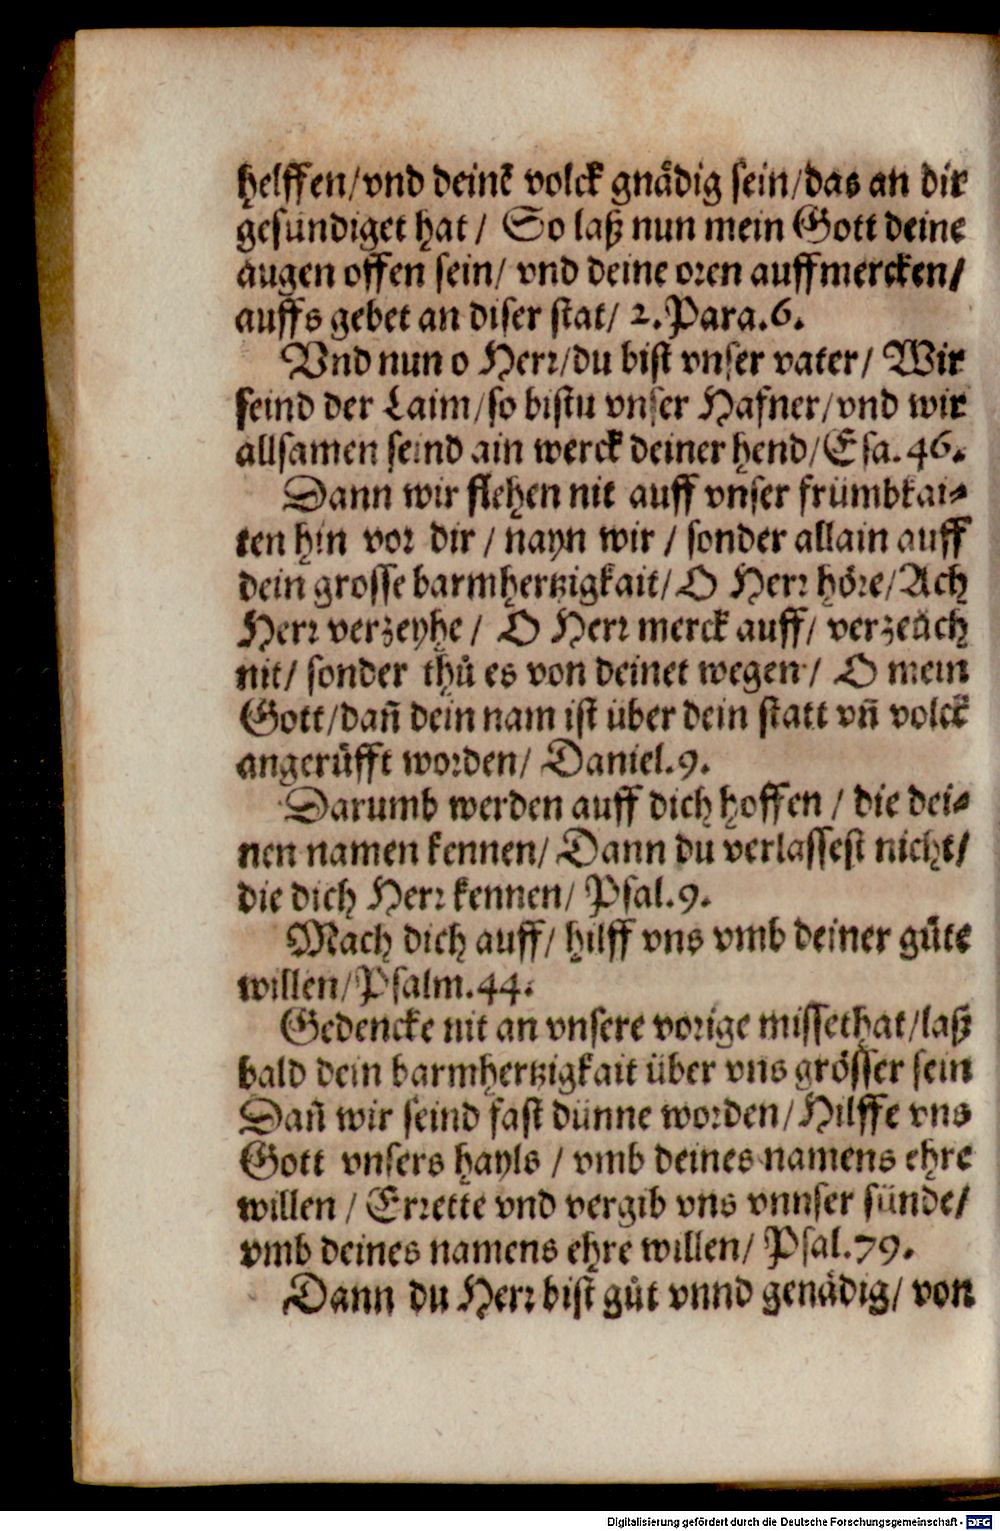 helffen/vnd deinē volck gnådig sein/das an dir
gesündiget hat / So laß nun mein Gott deine
augen offen sein/ vnd deine oren auffmercken/
auffs gebet an diser stat/ 2.Para.6.
Vnd nun o Herr/du bist vnser vater/ Wir
seind der Laim/so bistu vnser Hafner/vnd wir
allsamen seind ain werck deiner hend/Esa.46.
Dann wir flehen nit auff vnser frümbkai⸗
ten hin vor dir / nayn wir / sonder allain auff
dein grosse barmhertzigkait/ O Herr höre/Ach
Herr verzeyhe / O Herr merck auff/ verzeüch
nit/ sonder thů es von deinet wegen / O mein
Gott/dañ dein nam ist über dein statt vñ volck
angerůfft worden/ Daniel.9.
Darumb werden auff dich hoffen / die dei⸗
nen namen kennen/ Dann du verlassest nicht/
die dich Herr kennen/ Psal.9.
Mach dich auff/ hilff vns vmb deiner gůte
willen/Psalm.44.
Gedencke nit an vnsere vorige missethat/laß
bald dein barmhertzigkait über vns grösser sein
Dañ wir seind fast dünne worden/Hilffe vns
Gott vnsers hayls / vmb deines namens ehre
willen / Errette vnd vergib vns vnnser sünde/
vmb deines namens ehre willen/ Psal.79.
Dann du Herr bist gůt vnnd genådig/ von
Digitalisierung gefördert durch die Deutsche Forschungsgemeinschaft - DFG